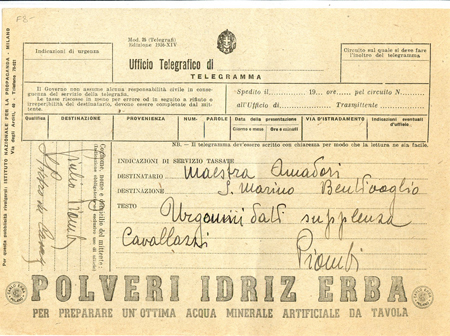 F.E.-
Mod. 25 (Telegrafi)
Edizione 1936-XIV
Indicazioni di urgenza
Ufficio Telegrafico di
TELEGRAMMA
Circuito sul quale si deve fare l'inoltro del telegramma
Il Governo non assume alcuna responsabilità civile in conseguenza del servizio della telegrafia.
Le tasse riscosse in meno per errore od in seguito a rifiuto o irreperibilità del destinatario, devono essere completate dal mittente.
Spedito il 19 ore pel circuito N
all'Ufficio di Trasmittente
Qualifica
DESTINAZIONE
PROVENIENZA
NUM.
PAROLE
Data della presentazione
Giorno e mese
Ore e minuti
VIA D'ISTRADAMENTO
Indicazioni eventuali d'ufficio
NB. - Il telegramma dev'essere scritto con chiarezza per modo che la lettura ne sia facile.
INDICAZIONI DI SERVIZIO TASSATE
DESTINATARIO Maestra Amadori
DESTINAZIONE S. Marino Bentivoglio
TESTO Urgonmi dati supplenza
Cavallazzi
Piombi
Cognome, nome e domicilio del mittente
Giulio Piombi
POLVERI IDRIZ ERBA
PER PREPARARE UN'OTTIMA ACQUA MINERALE ARTIFICIALE DA TAVOLA
ISTITUTO NAZIONALE PER LA PROPAGANDA - MILANO